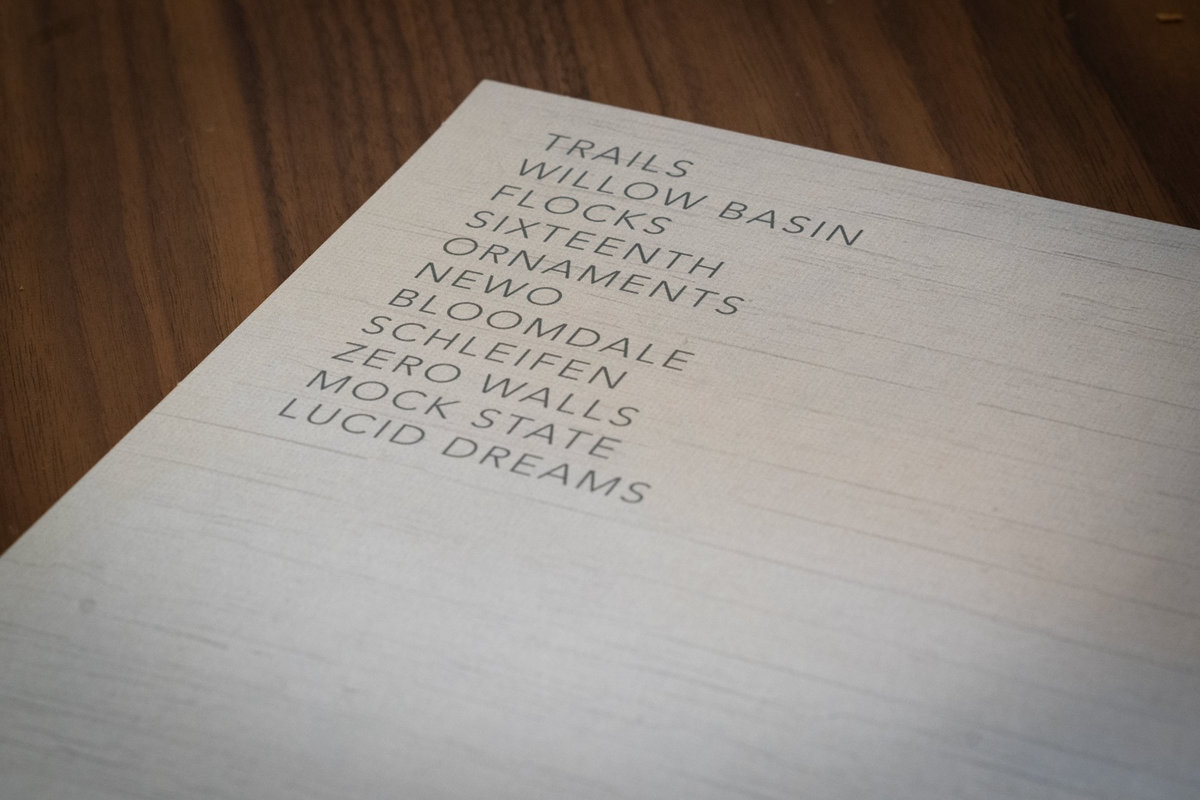 TRAILS
WILLOW BASIN
FLOCKS
SIXTEENTH
ORNAMENTS
NEWO
BLOOMDALE
SCHLEIFEN
ZERO WALLS
MOCK STATE
LUCID DREAMS